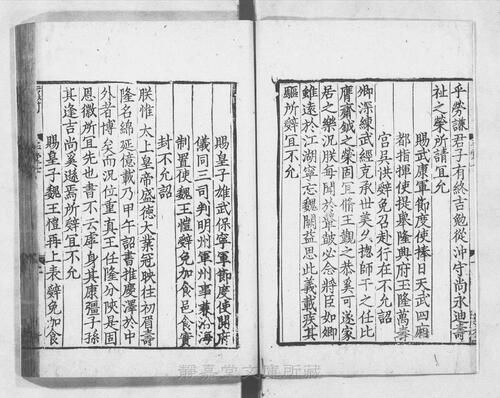 乎勞謙君子有終吉勉從沖守尚永迪壽
祉之榮所請宜允
賜武康軍節度使捧日天武四廂
都指揮使提舉隆興府玉隆萬壽
宮吳拱辭免召赴行在不允詔
卿深練武經克承世美久揔師干之任比
膺齋鉞之榮固宜脩王觀之恭奚可遂家
居之樂況朕每聞於鼙鼓必念將臣如卿
雖遠於江湖寧忘魏闕益思此義載疾其
驅所辭宜不允
賜皇子雄武保寧軍節度使開府
儀同三司判明州軍州事兼沿海
制置使魏王愷辭免加食邑食實
封不允詔
朕惟 太上皇帝盛德大業冠映往初眉壽
隆名綿延億載乃甲午詔書推慶澤於中
外者博矣而況位重真王任隆分陝是固
恩徽所宜先也書不云虖身其康彊子孫
其逢吉尚奚遜焉所辭宜不允
賜皇子魏王愷再上表辭免加食
靜嘉堂文庫所藏